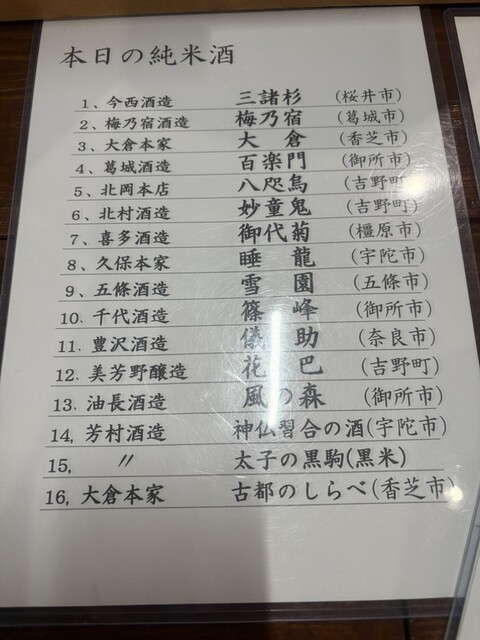 本日の純米酒
1、今西酒造 三諸杉 (桜井市)
2、梅乃宿酒造 梅乃宿 (葛城市)
3、大倉本家 大倉 (香芝市)
4、葛城酒造 百楽門 (御所市)
5、北岡本店 八咫烏 (吉野町)
6、北村酒造 妙童鬼 (吉野町)
7、喜多酒造 御代菊 (橿原市)
8、久保本家 睡龍 (宇陀市)
9、五條酒造 雪園 (五條市)
10、千代酒造 篠峰 (御所市)
11、豊沢酒造 儀助 (奈良市)
12、美芳野醸造 花巴 (吉野町)
13、油長酒造 風の森 (御所市)
14, 芳村酒造 神仏習合の酒(宇陀市)
15, 〃 太子の黒駒(黒米)
16, 大倉本家 古都のしらべ(香芝市)